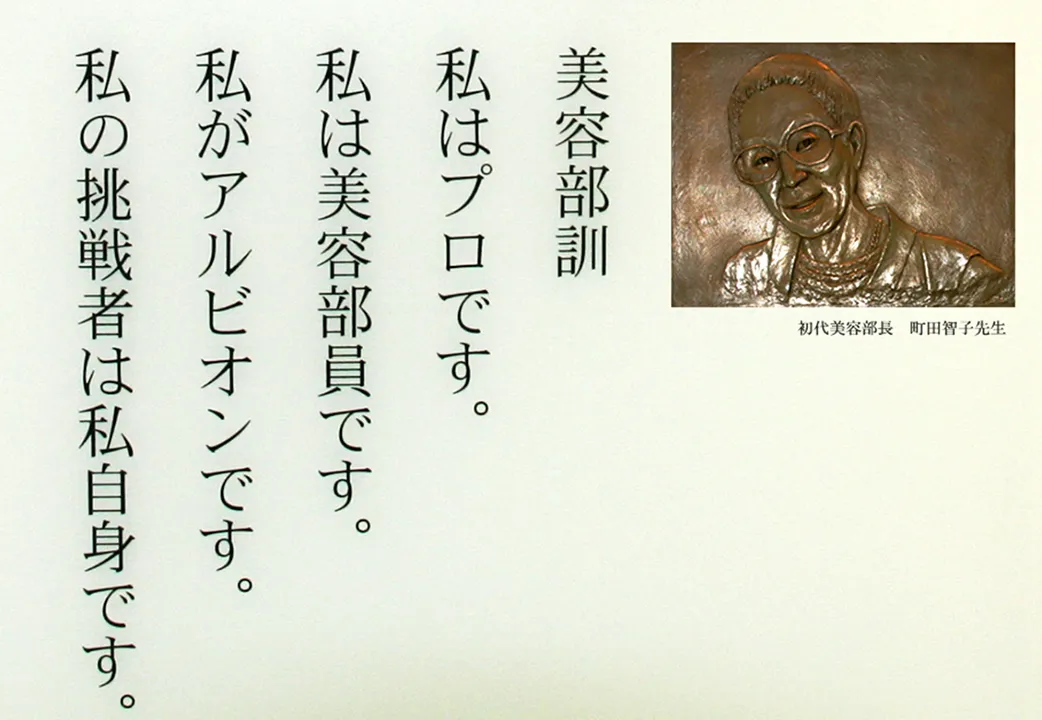 美容部訓
私はプロです。
私は美容部員です。
私がアルビオンです。
私の挑戦者は私自身です。
初代美容部長　町田智子先生